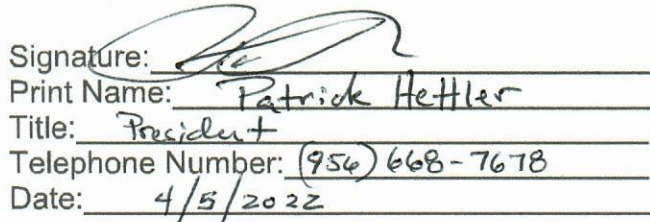 Signature:
Print Name: Patrick Hettler
Title: President
Telephone Number: (956) 668-7678
Date: 4/5/2022